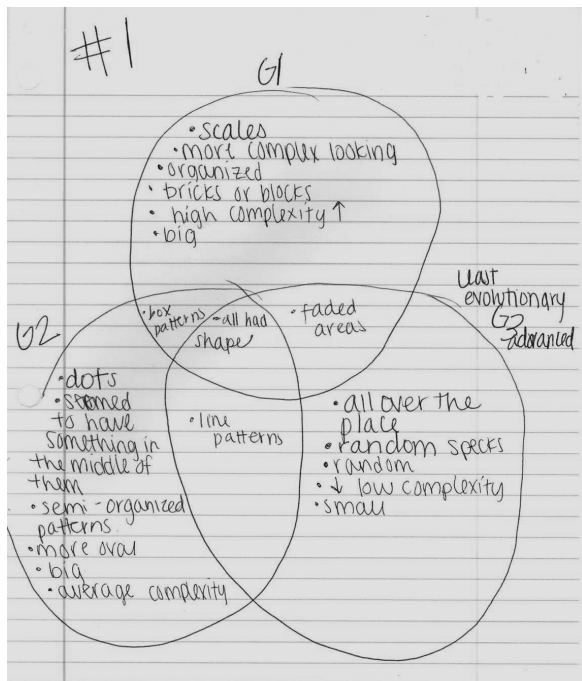 #1
G1
• scales
• more complex looking
• organized
• bricks or blocks
• high complexity ↑
• big
• box
patterns
- all had
shape
• faded
areas
Least
evolutionary
advanced
G2
• dots
• seemed
to have
something in
the middle of
them
• semi-organized
patterns
• more oval
• big
• average complexity
• line
patterns
• all over the
place
• random specks
• random
• ↓ low complexity
• small